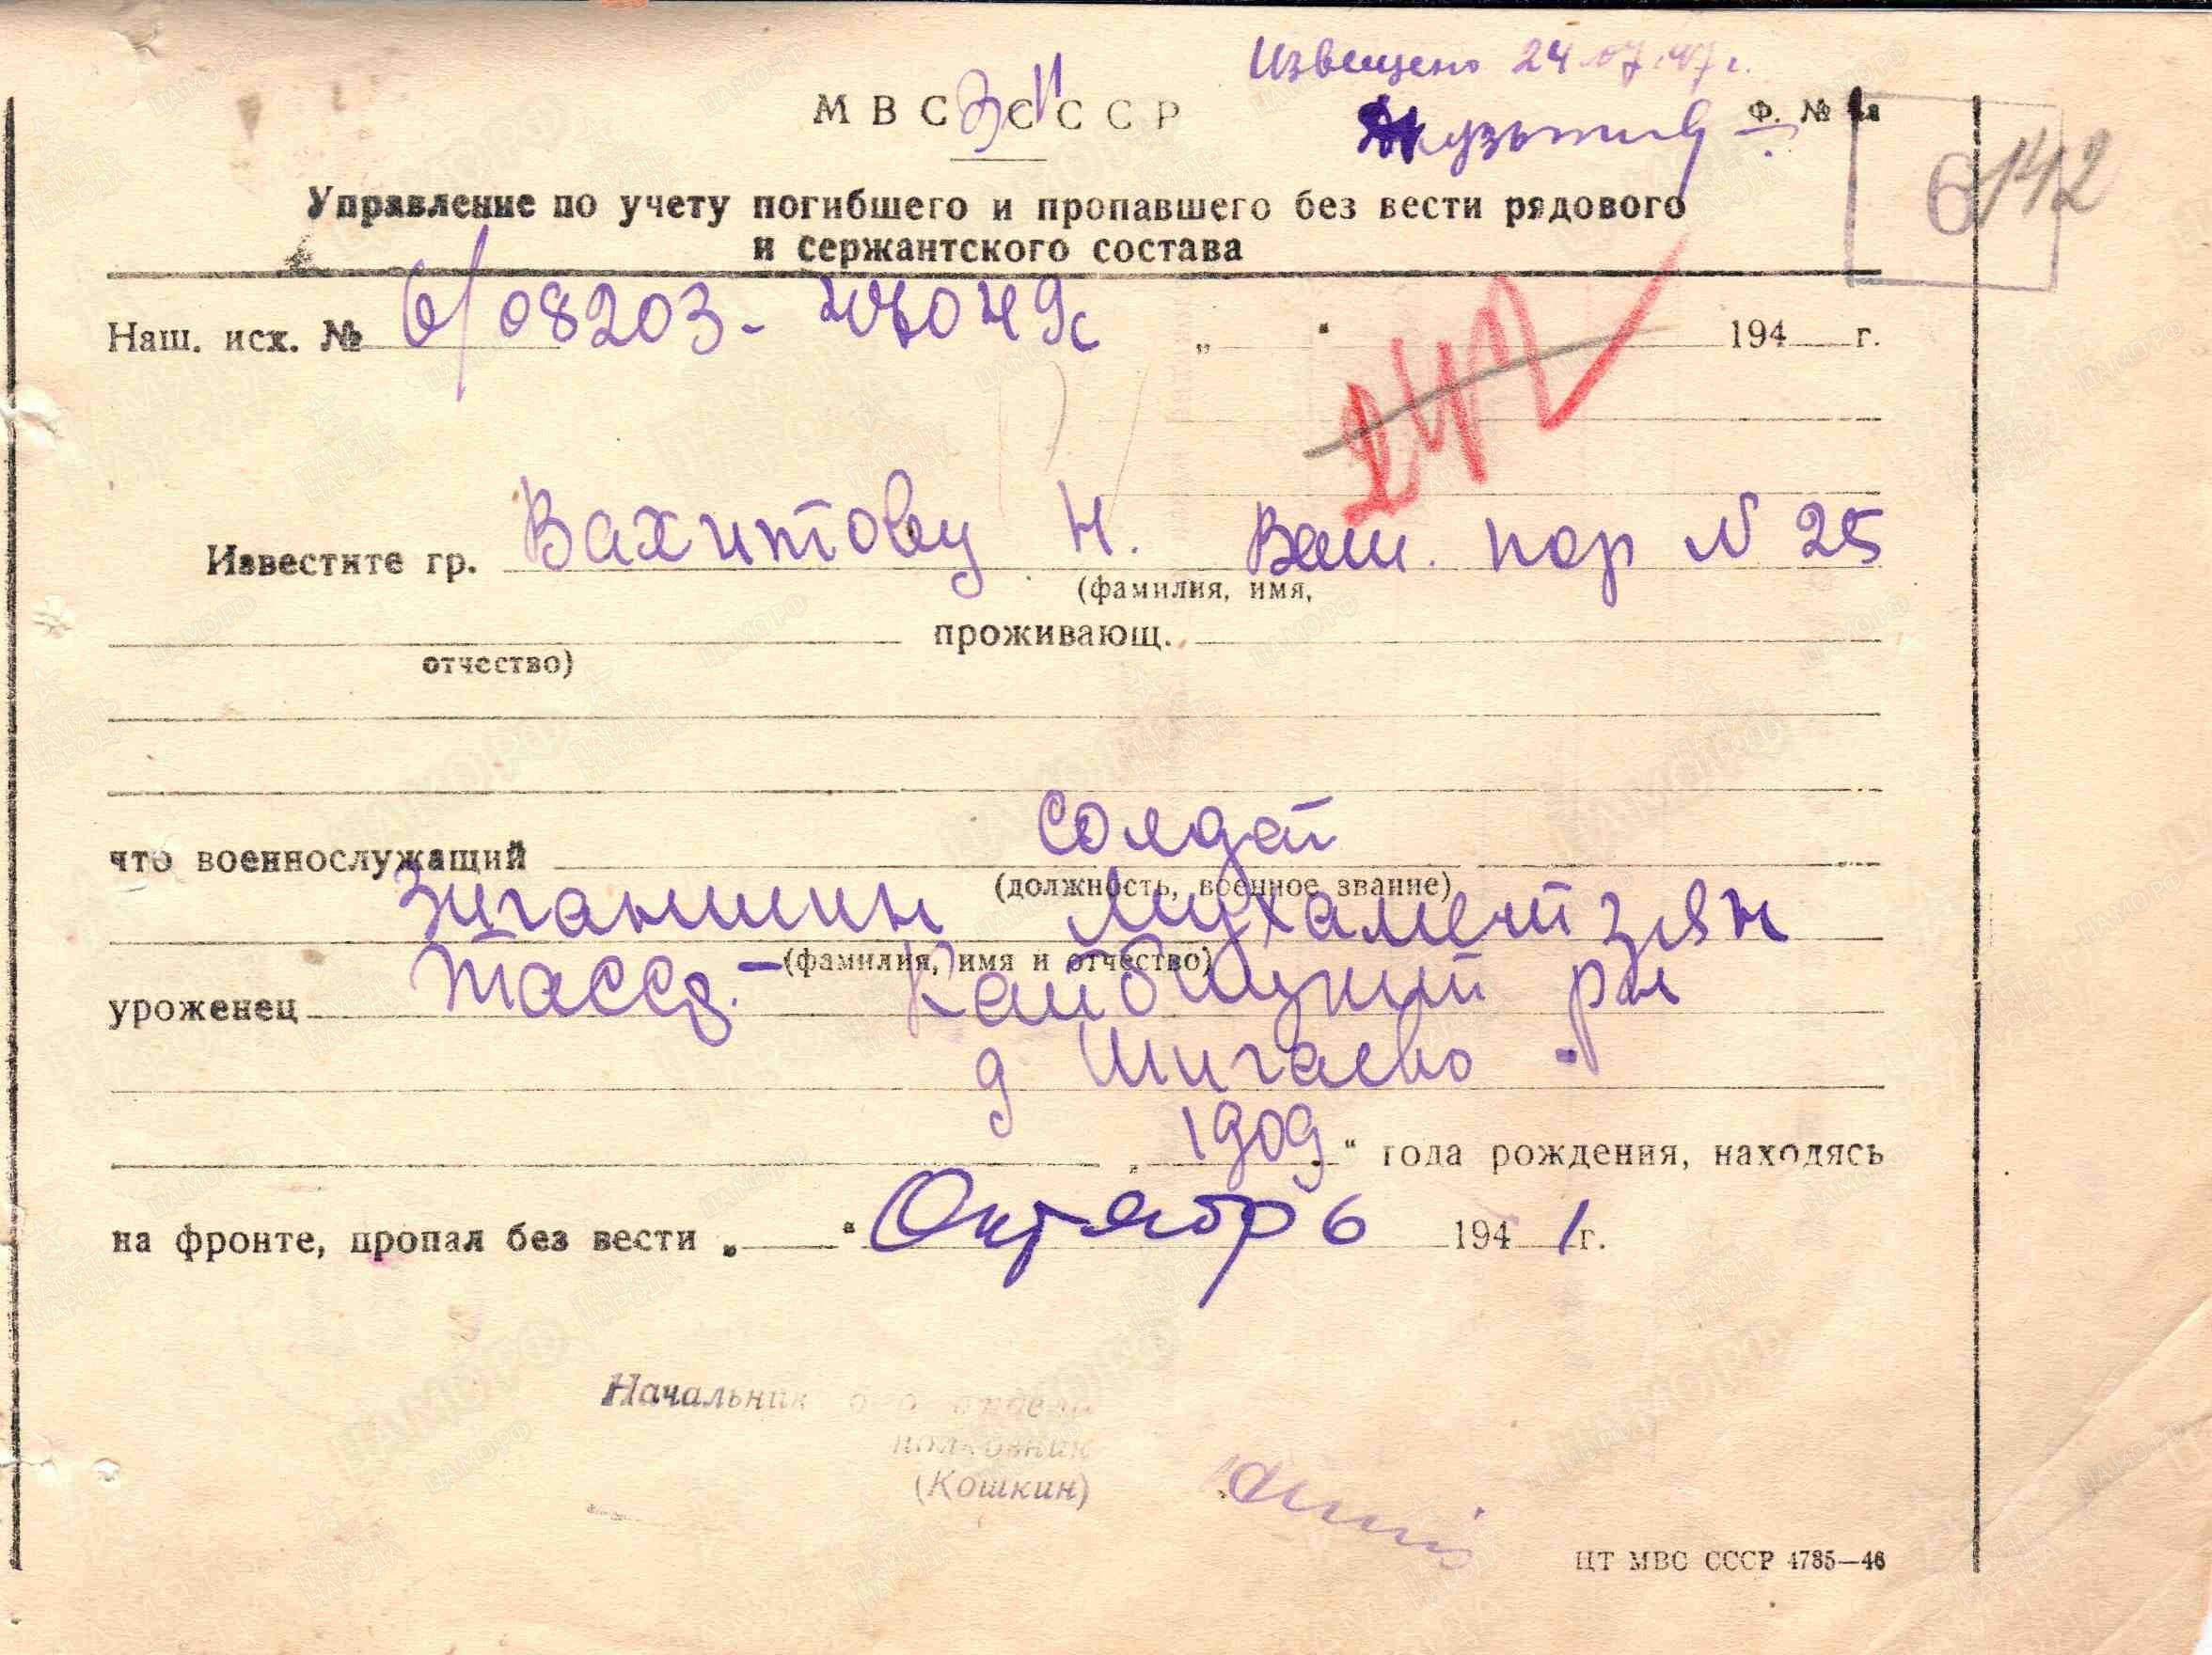 Извещено 24.07.47 г.
МВС СССР
Ф. №
6142
Управление по учету погибшего и пропавшего без вести рядового
и сержантского состава
Наш. исх. № 6/08203- „ “ 194 г.
242
Известите гр. Вахитову Н. Ваш. пор N 25
(фамилия, имя,
проживающ.
отчество)
что военнослужащий солдат
(должность, военное звание)
Зиганшин Мухаметзян
(фамилия, имя и отчество)
уроженец Тасср. - Кайбицкий р-н
д Шигаево
„ 1909 “ года рождения, находясь
на фронте, пропал без вести „ “ Октябрь 1941 г.
Начальник
полковник
(Кошкин)
ЦТ МВС СССР 4785—46